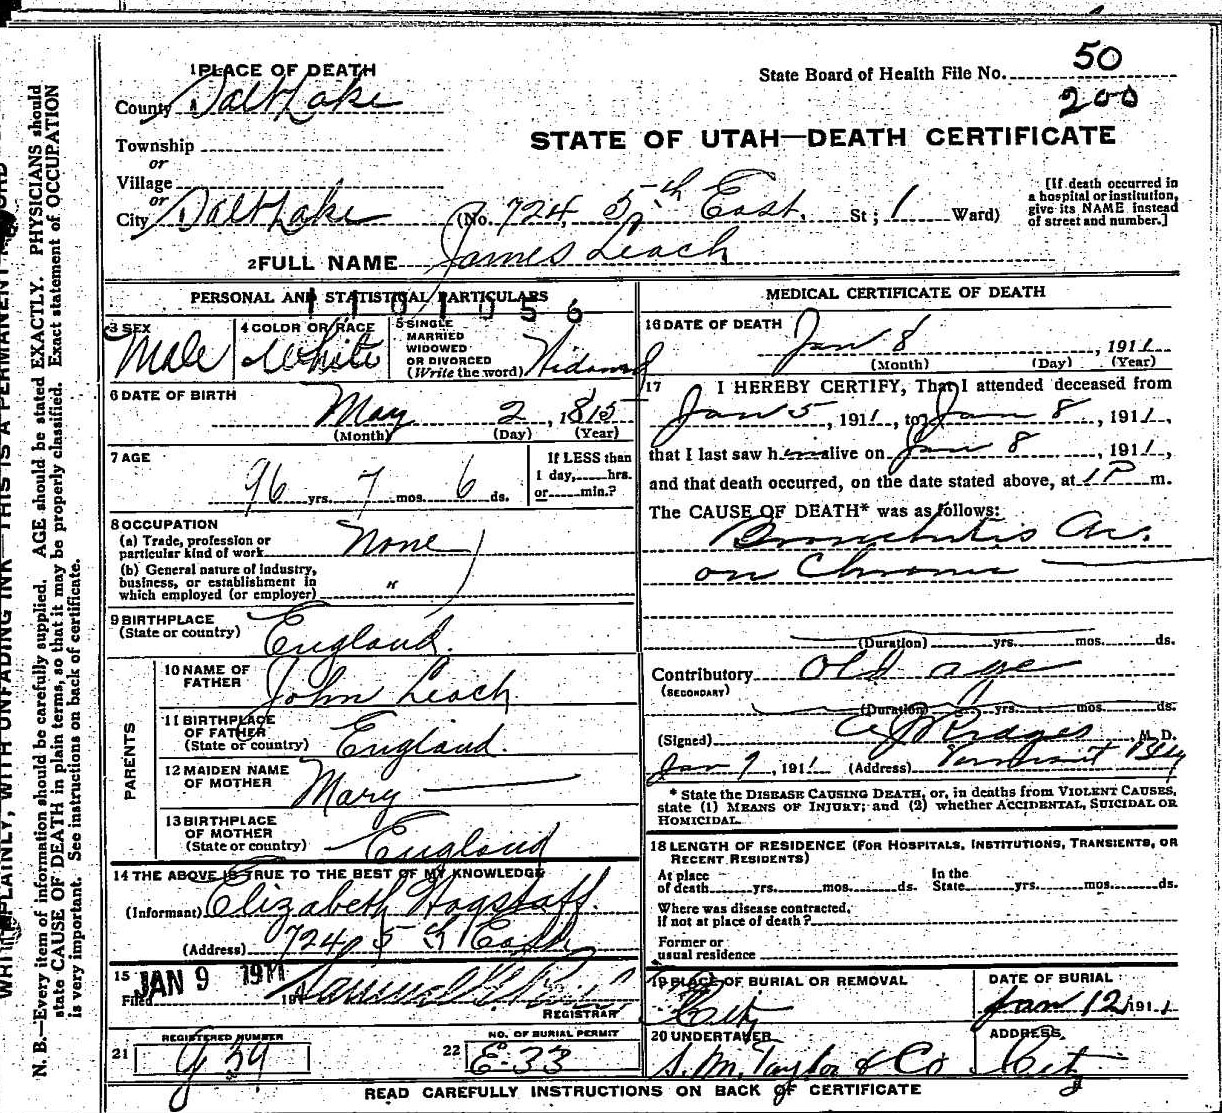 1 PLACE OF DEATH
County Salt Lake
Township
or
Village
or
City Salt Lake (No. 724 5th East, St; 1 Ward)
State Board of Health File No. 50
200
STATE OF UTAH—DEATH CERTIFICATE
[If death occurred in
a hospital or institution,
give its NAME instead
of street and number.]
2 FULL NAME James Leach
PERSONAL AND STATISTICAL PARTICULARS
1101056
3 SEX
Male
4 COLOR OR RACE
White
5 SINGLE
MARRIED
WIDOWED
OR DIVORCED
(Write the word)
6 DATE OF BIRTH
May 2, 1815
(Month) (Day) (Year)
7 AGE
96 yrs. 7 mos. 6 ds.
If LESS than
1 day, hrs.
or min.?
8 OCCUPATION
(a) Trade, profession or
particular kind of work None
(b) General nature of industry,
business, or establishment in
which employed (or employer) "
9 BIRTHPLACE
(State or country) England.
PARENTS
10 NAME OF
FATHER John Leach
11 BIRTHPLACE
OF FATHER
(State or country) England.
12 MAIDEN NAME
OF MOTHER Mary
13 BIRTHPLACE
OF MOTHER
(State or country) England
14 THE ABOVE IS TRUE TO THE BEST OF MY KNOWLEDGE
(Informant) Elizabeth Hogstaff.
(Address) 724 5th East
15
Filed JAN 9 1911 191
REGISTRAR
21 REGISTERED NUMBER
22 NO. OF BURIAL PERMIT
E-33
MEDICAL CERTIFICATE OF DEATH
16 DATE OF DEATH
Jan 8, 1911
(Month) (Day) (Year)
17 I HEREBY CERTIFY, That I attended deceased from
Jan 5, 1911, to Jan 8, 1911,
that I last saw him alive on Jan 8, 1911,
and that death occurred, on the date stated above, at 1 P m.
The CAUSE OF DEATH* was as follows:
Bronchitis Ac.
on Chronic
(Duration) yrs. mos. ds.
Contributory Old age
(SECONDARY)
(Duration) yrs. mos. ds.
(Signed) M. D.
Jan 9, 1911 (Address)
* State the DISEASE CAUSING DEATH, or, in deaths from VIOLENT CAUSES,
state (1) MEANS OF INJURY; and (2) whether ACCIDENTAL, SUICIDAL OR
HOMICIDAL.
18 LENGTH OF RESIDENCE (FOR HOSPITALS, INSTITUTIONS, TRANSIENTS, OR
RECENT RESIDENTS)
At place
of death yrs. mos. ds.
In the
State yrs. mos. ds.
Where was disease contracted,
if not at place of death?
Former or
usual residence
19 PLACE OF BURIAL OR REMOVAL
City
DATE OF BURIAL
Jan 12 1911
20 UNDERTAKER
S. M. Taylor & Co
ADDRESS
City
READ CAREFULLY INSTRUCTIONS ON BACK OF CERTIFICATE
WRITE PLAINLY, WITH UNFADING INK—THIS IS A PERMANENT
N. B.—Every item of information should be carefully supplied. AGE should be stated EXACTLY. PHYSICIANS should
state CAUSE OF DEATH in plain terms, so that it may be properly classified. Exact statement of OCCUPATION
is very important. See instructions on back of certificate.